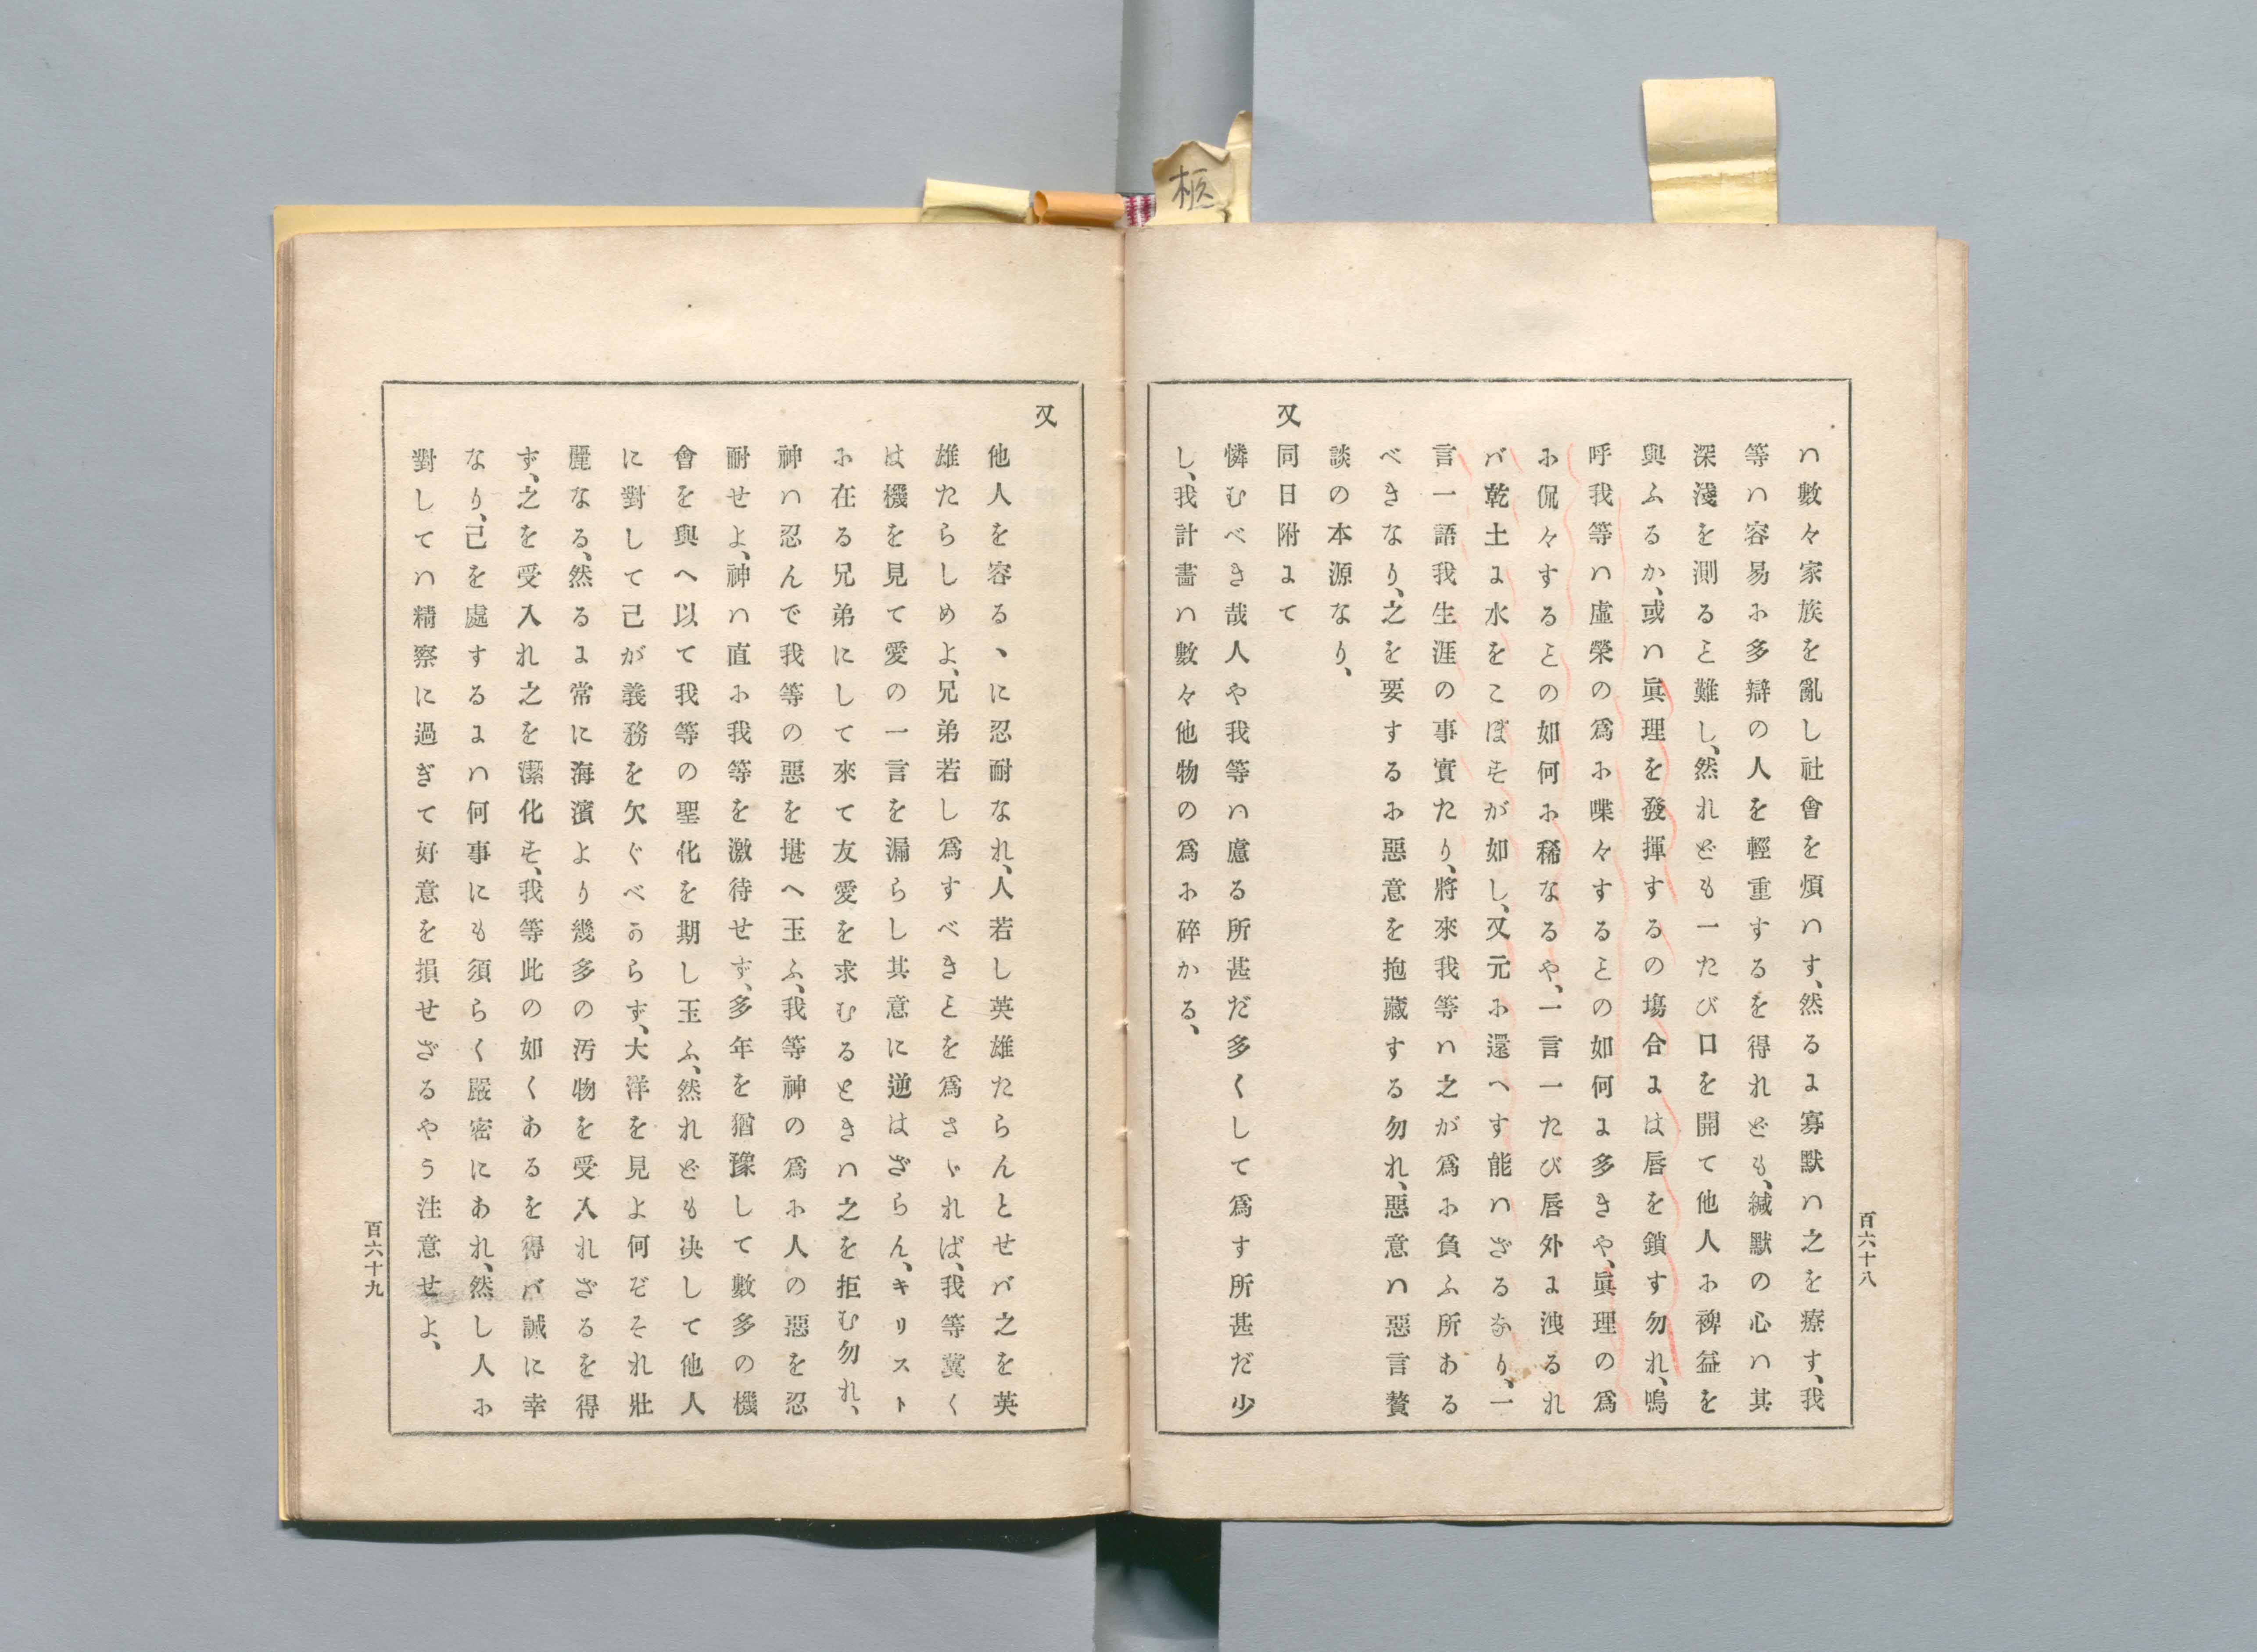 柩
ハ數々家族を亂し社會を煩ハす、然るに寡默ハ之を療す、我
等ハ容易に多辯の人を輕重するを得れども、緘默の心ハ其
深淺を測ること難し、然れども一たび口を開て他人に裨益を
與ふるか、或ハ眞理を發揮するの塲合には唇を鎖す勿れ、嗚
呼我等ハ虛榮の爲に喋々することの如何に多きや、眞理の爲
に侃々することの如何に稀なるや、一言一たび唇外に洩るれ
バ乾土に水をこぼすが如し、又元に還へす能ハざるなり、一
言一語我生涯の事實たり、將來我等ハ之が爲に負ふ所ある
べきなり、之を要するに惡意を抱藏する勿れ、惡意ハ惡言贅
談の本源なり、
又 同日附にて
憐むべき哉人や我等ハ慮る所甚だ多くして爲す所甚だ少
し、我計畵ハ數々他物の爲に碎かる、
百六十八
又
他人を容るゝに忍耐なれ、人若し英雄たらんとせバ之を英
雄たらしめよ、兄弟若し爲すべきことを爲さゞれば、我等冀く
は機を見て愛の一言を漏らし其意に逆はざらん、キリスト
に在る兄弟にして來て友愛を求むるときハ之を拒む勿れ、
神ハ忍んで我等の惡を堪へ玉ふ、我等神の爲に人の惡を忍
耐せよ、神ハ直に我等を激待せず、多年を猶豫して數多の機
會を與へ以て我等の聖化を期し玉ふ、然れども决して他人
に對して己が義務を欠ぐべからず、大洋を見よ何ぞそれ壯
麗なる、然るに常に海濱より幾多の汚物を受入れざるを得
ず、之を受入れ之を潔化す、我等此の如くあるを得バ誠に幸
なり、己を處するにハ何事にも須らく嚴密にあれ、然し人に
對してハ精察に過ぎて好意を損せざるやう注意せよ、
百六十九